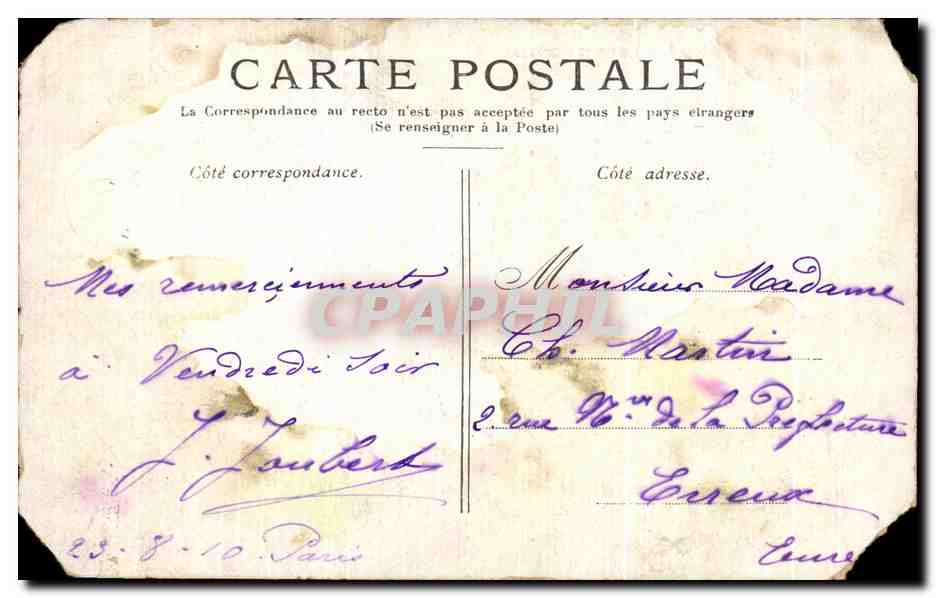 CARTE POSTALE
La Correspondance au recto n'est pas acceptée par tous les pays etrangers
(Se renseigner à la Poste)
Côté correspondance.
Côté adresse.
Mes remerciements
à Vendredi Soir
J. Joubert
23-8-10 Paris
Monsieur Madame
Ch. Martin
2 rue Nve de la Prefecture
Evreux
Eure
CPAPHIL